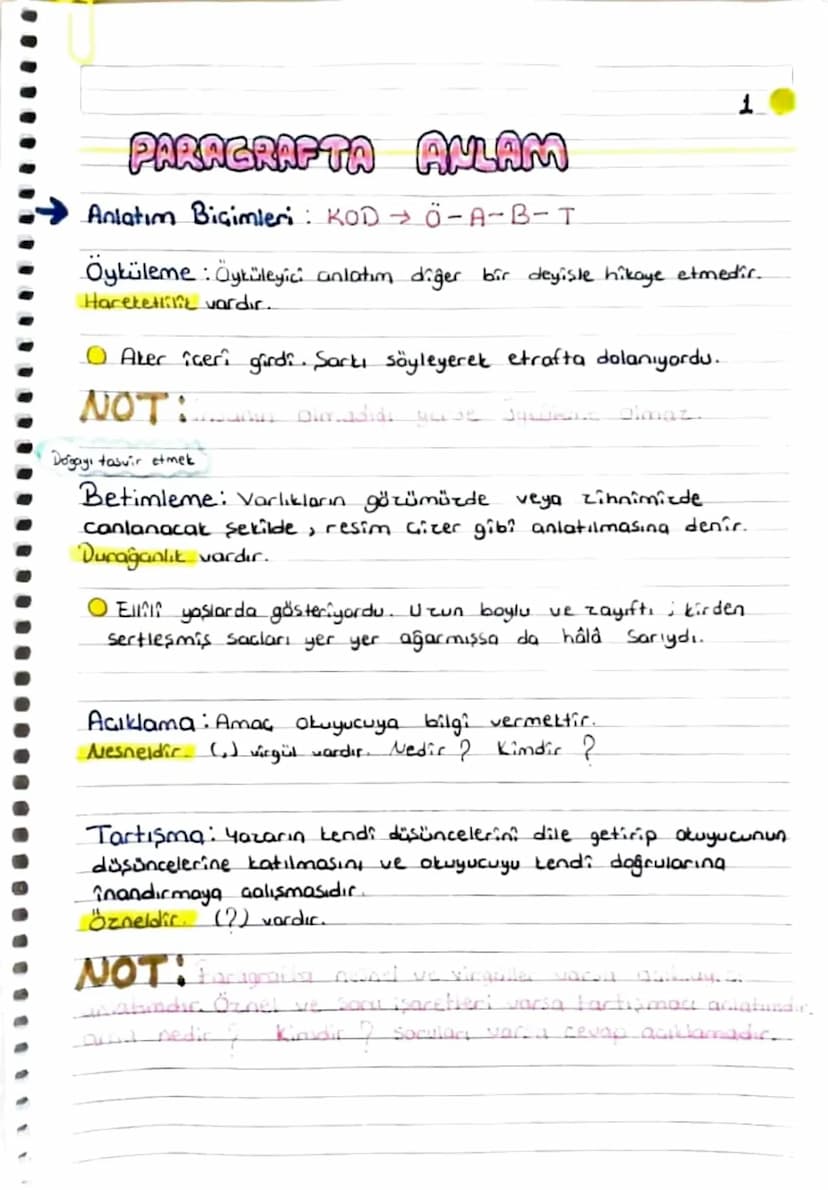 1
PARAGRAFTA ANLAM
→ Anlatım Biçimleri : KOD → Ö-A-B-T
Öyküleme : Öyküleyici anlatım diğer bir deyişle hikaye etmedir.
Hareketlilik vardır.
Alter içeri girdi. Şarkı söyleyerek etrafta dolanıyordu.
NOT: olmadığı yerde öyküleme olmaz.
Doğayı tasvir etmek
Betimleme : Varlıkların gözümüzde veya zihnimizde
canlanacak şekilde , resim çizer gibi anlatılmasına denir.
Durağanlık vardır.
Ellili yaşlarda gösteriyordu. Uzun boylu ve zayıftı ; kirden
sertleşmiş saçları yer yer ağarmışsa da hâlâ sarıydı.
Açıklama : Amaç okuyucuya bilgi vermektir.
Nesneldir. (,) virgül vardır. Nedir ? Kimdir ?
Tartışma : Yazarın kendi düşüncelerini dile getirip okuyucunun
düşüncelerine katılmasını ve okuyucuyu kendi doğrularına
inandırmaya çalışmasıdır.
Özneldir. (?) vardır.
NOT: Paragrafta ve virgüller varsa
anlatımdır. Öznel ve soru işaretleri varsa tartışmacı anlatımdır.
nedir ? Kimdir ? soruları varsa cevap açıklamadır.